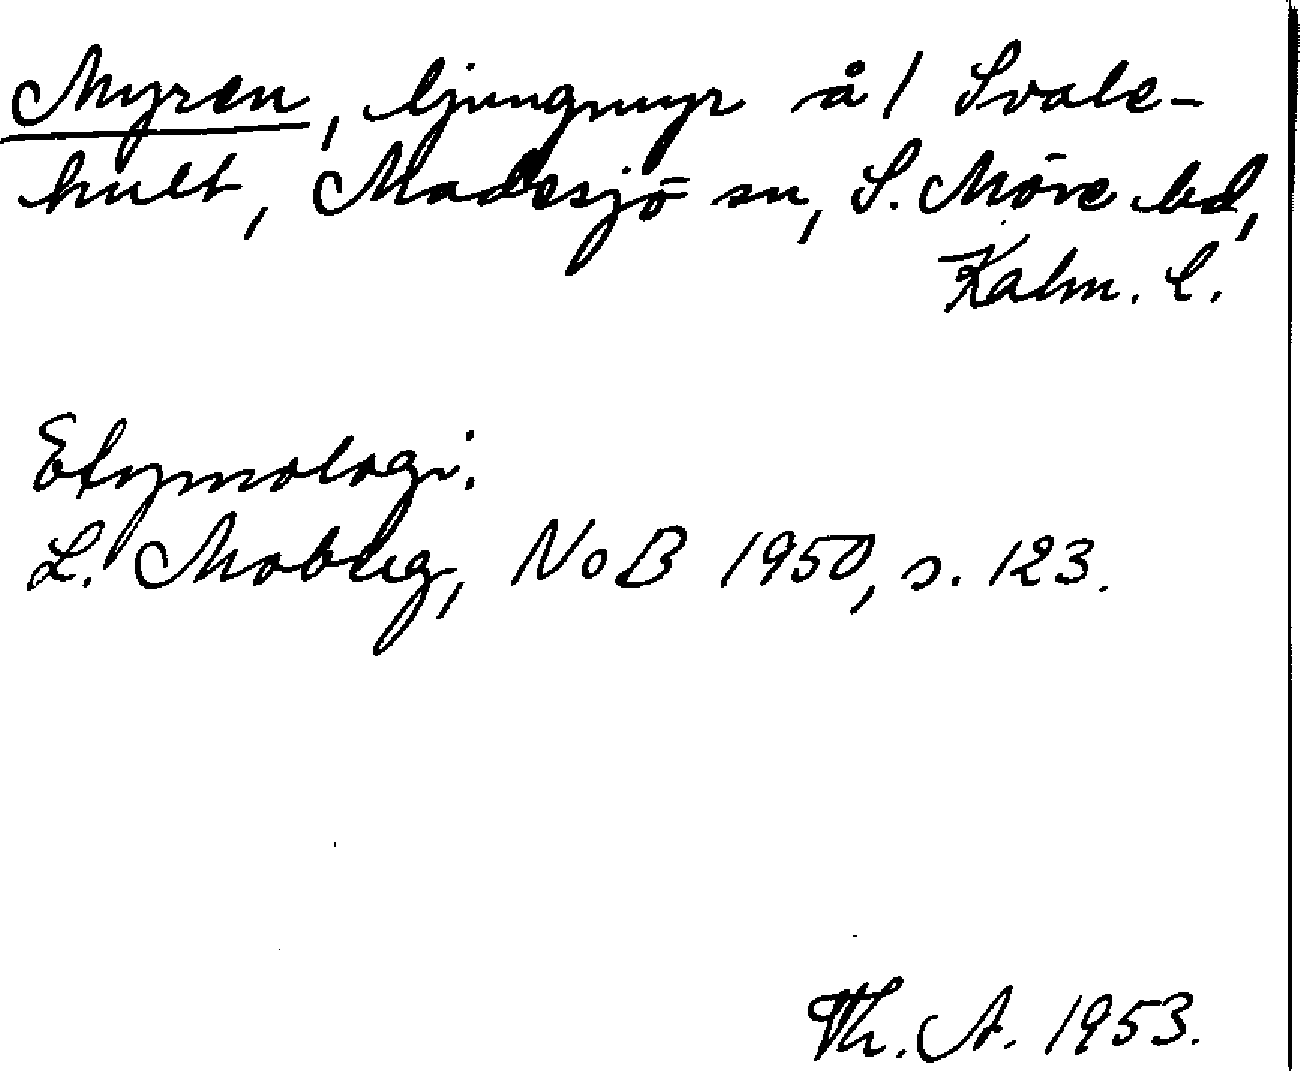 Myren, ljungmyr å / Svale-
hult, Madesjö sn, S. Möre hd,
Kalm. l.
Etymologi:
L. Moberg, NoB 1950, s. 123.
Th. A. 1953.